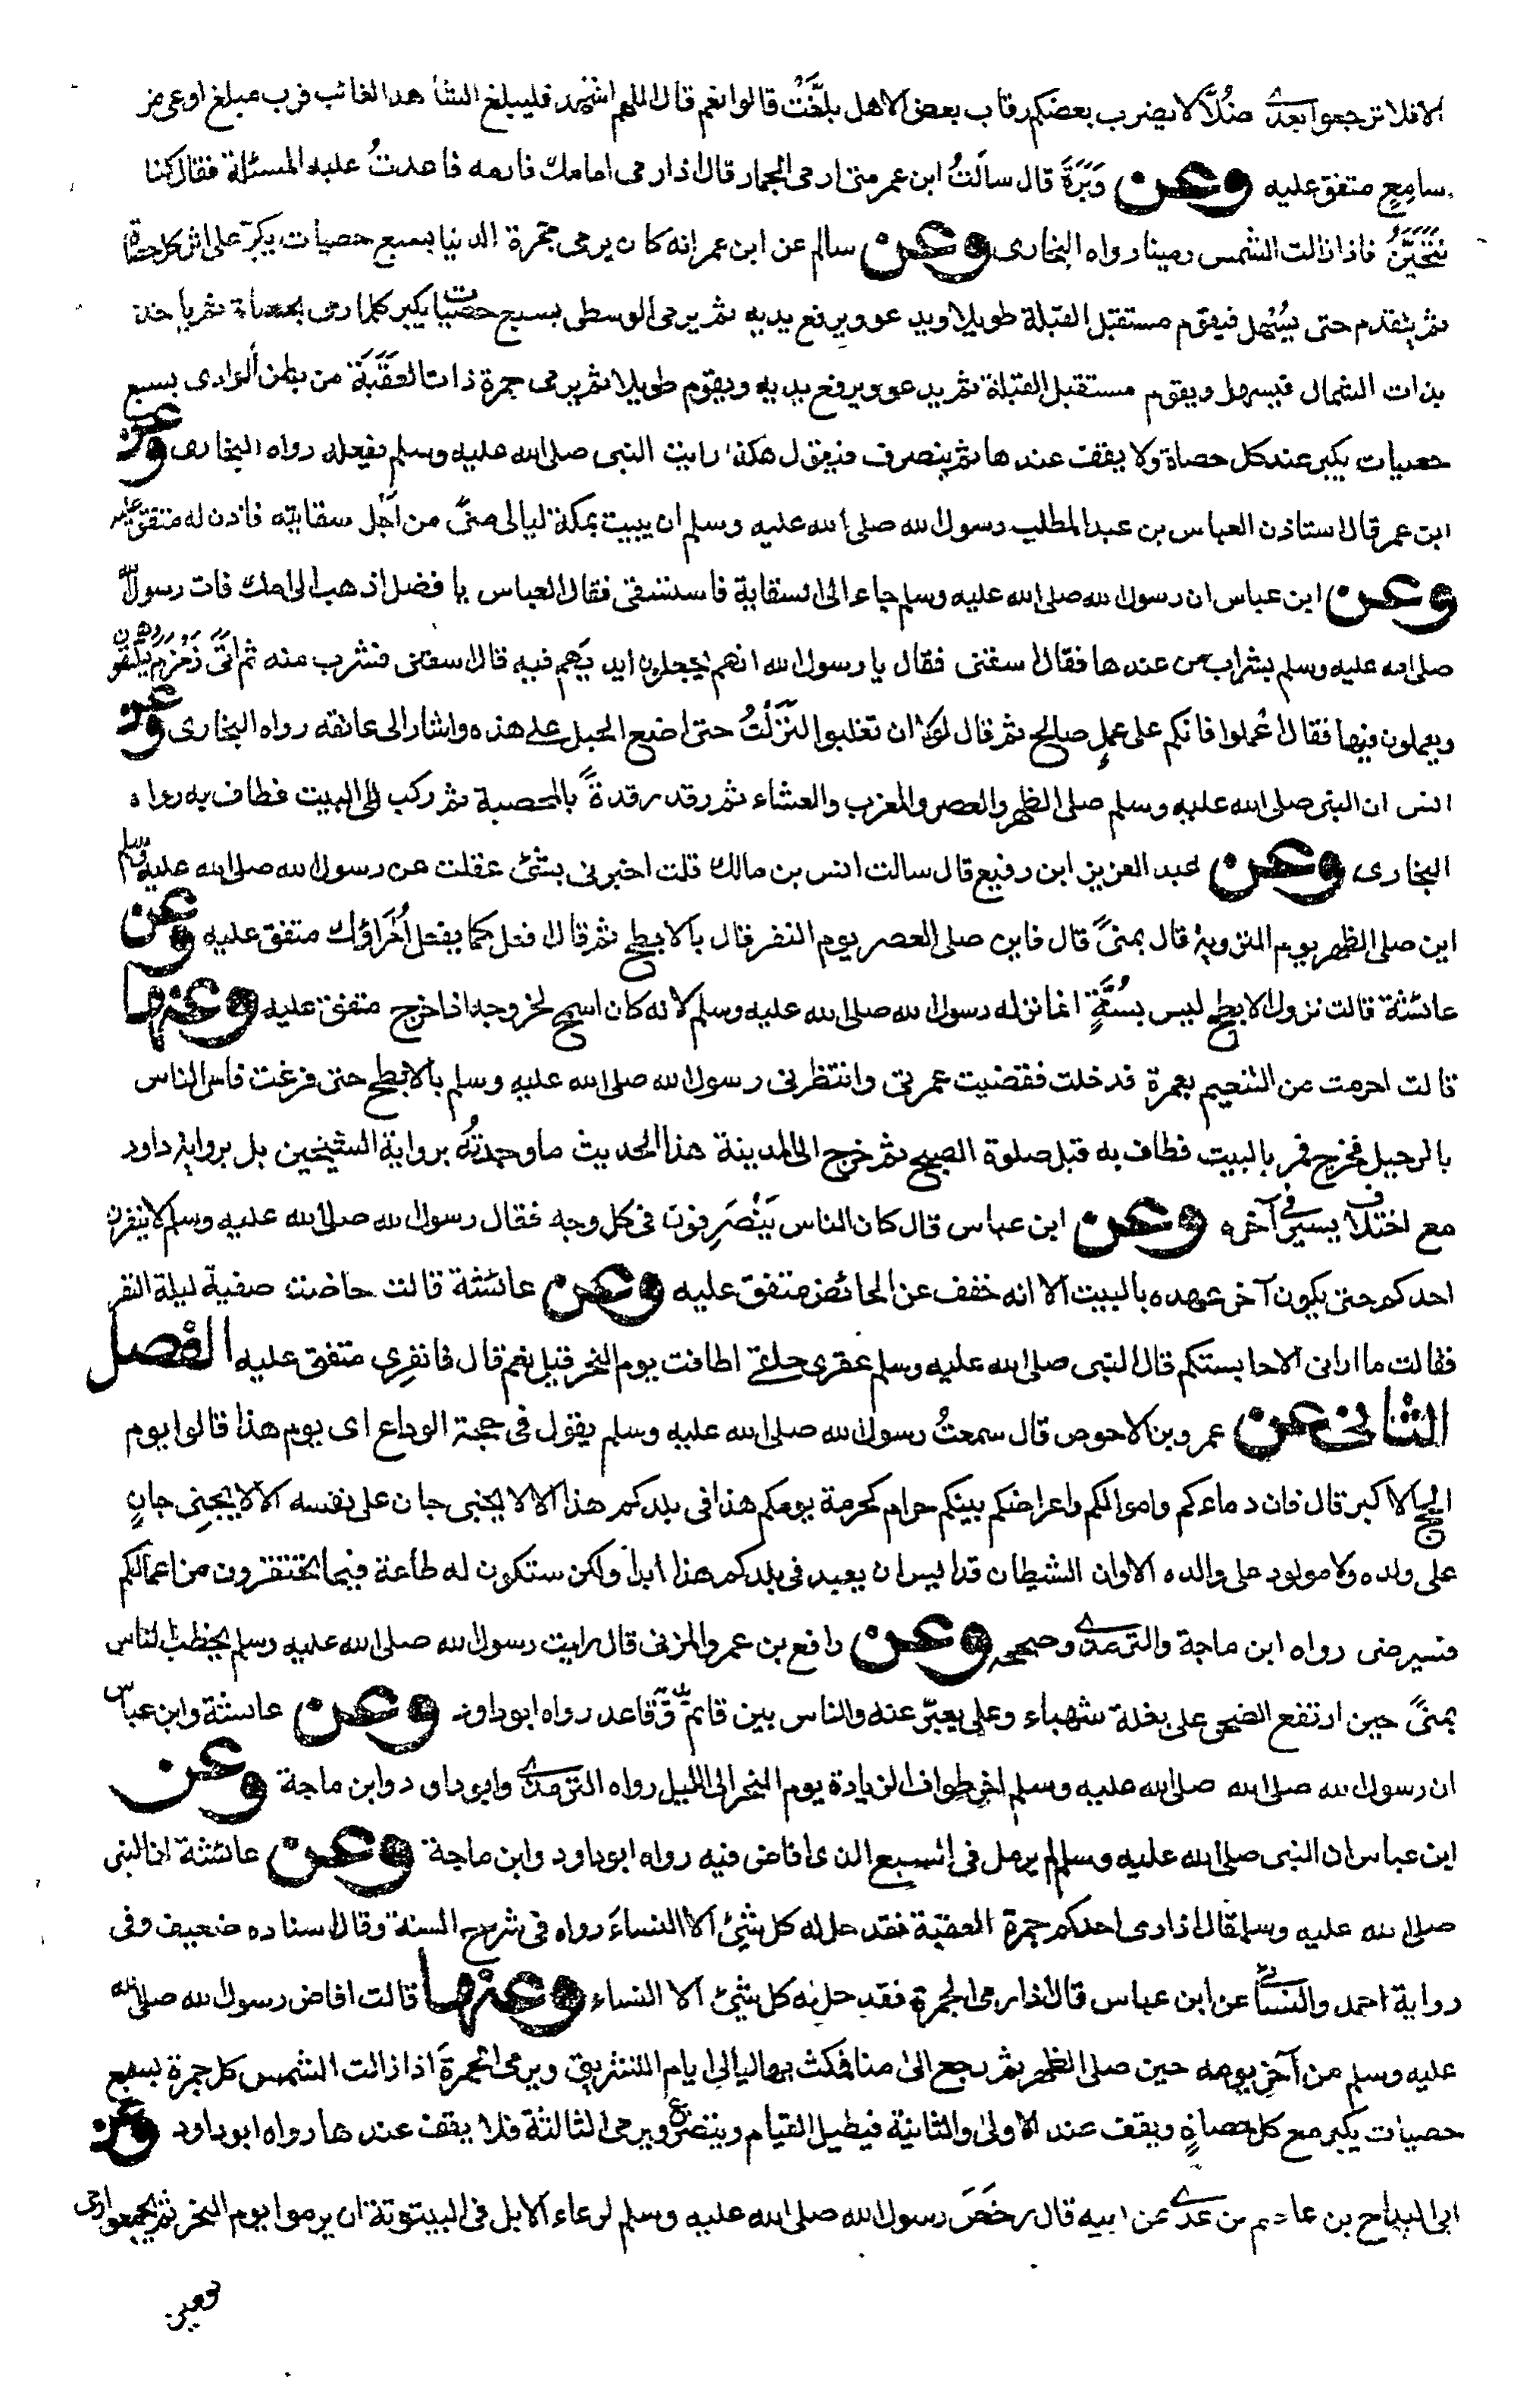 الا فلا ترجعوا بعدي ضُلَّالا يضرب بعضكم رقاب بعض الا هل بلَّغتُ قالوا نعم قال اللهم اشهد فليبلغ الشاهد الغائب فرب مبلغ اوعى من
سامِعٍ متفق عليه وعن وَبَرَةَ قال سالتُ ابن عمر متى ارمى الجمار قال اذا رمى امامك فارمه فاعدتُ عليه المسئلة فقال كنا
نَتَحَيَّنُ فاذا زالت الشمس رمينا رواه البخارى وعن سالم عن ابن عمر انه كان يرمى جمرة الدنيا بسبع حصيات يكبّر على اثر كل حصاة
ثم يتقدم حتى يُسْهل فيقوم مستقبل القبلة طويلا ويدعو ويرفع يديه ثم يرمى الوسطى بسبع حصيات يكبر كلما رمى بحصاة ثم ياخذ
بذات الشمال فيسهل ويقوم مستقبل القبلة ثم يدعو ويرفع يديه ويقوم طويلا ثم يرمى جمرة ذات العَقَبَة من بطن الوادى بسبع
حصيات يكبر عند كل حصاة ولا يقف عندها ثم ينصرف فيقول هكذا رايت النبى صلى الله عليه وسلم يفعله رواه البخارى وعن
ابن عمر قال استاذن العباس بن عبد المطلب رسول الله صلى الله عليه وسلم ان يبيت بمكة ليالى منىً من اَجْل سقايته فاذن له متفق عليه
وعن ابن عباس ان رسول الله صلى الله عليه وسلم جاء الى السقاية فاستسقى فقال العباس يا فضل اذهب الى امك فات رسول الله
صلى الله عليه وسلم بشراب من عندها فقال اسقنى فقال يا رسول الله انهم يجعلون ايديَهم فيه قال اسقنى فشرب منه ثم اَتَى زَمْزَمَ وهم يسقون
ويعملون فيها فقال اعْملوا فانكم على عملٍ صالحٍ ثم قال لولا ان تغلبوا لنَزَلْتُ حتى اضع الحبل على هذه واشار الى عاتقه رواه البخارى وعن
انس ان النبى صلى الله عليه وسلم صلى الظهر والعصر والمغرب والعشاء ثم رقد رقدةً بالمحصبة ثم ركب الى البيت فطاف به رواه
البخارى وعن عبد العزيز ابن رفيع قال سالت انس بن مالك قلت اخبرنى بشئ عقلت عن رسول الله صلى الله عليه وسلم
اين صلى الظهر يوم التروية قال بمنىً قال فاين صلى العصر يوم النفر قال بالابطح ثم قال افعل كما يفعل اُمَراؤك متفق عليه وعن
عائشة قالت نزول الابطح ليس بسُنَّةٍ انما نزله رسول الله صلى الله عليه وسلم لانه كان اسمح لخروجه اذا خرج متفق عليه وعنها
قالت احرمت من التنعيم بعمرة فدخلت فقضيت عمرتى وانتظرنى رسول الله صلى الله عليه وسلم بالابطح حتى فرغت فامر الناس
بالرحيل فخرج فمر بالبيت فطاف به قبل صلوة الصبح ثم خرج الى المدينة هذا الحديث ما وجدتُه برواية الشيخين بل برواية داود
مع اختلاف يسير فى آخره وعن ابن عباس قال كان الناس يَنْصَرِفون فى كل وجه فقال رسول الله صلى الله عليه وسلم لا ينفرن
احدكم حتى يكون آخر عهده بالبيت الا انه خفف عن الحائض متفق عليه وعن عائشة قالت حاضت صفية ليلة النفر
فقالت ما ارانى الا حابستكم قال النبى صلى الله عليه وسلم عقرى حلقى اطافت يوم النحر قيل نعم قال فانفِرِى متفق عليه الفصل
الثانى عن عمرو بن الاحوص قال سمعتُ رسول الله صلى الله عليه وسلم يقول فى حجة الوداع اى يوم هذا قالوا يوم
الحج الاكبر قال فان دماءكم واموالكم واعراضكم بينكم حرام كحرمة يومكم هذا فى بلدكم هذا الا لا يجنى جان على نفسه الا لا يَجنِى جانٍ
على ولده ولا مولود على والده الا وان الشيطان قد ايس ان يعبد فى بلدكم هذا ابدا ولكن ستكون له طاعة فيما تحتقرون من اعمالكم
فسيرضى رواه ابن ماجة والترمذي وصححه وعن رافع بن عمرو المزنى قال رايت رسول الله صلى الله عليه وسلم يخطب الناس
بمنىً حين ارتفع الضحى على بغلة شهباء وعلى يعبّر عنه والناس بين قائم وقاعد رواه ابوداود وعن عائشة وابن عباس
ان رسول الله صلى الله عليه وسلم اخر طواف الزيادة يوم النحر الى الليل رواه الترمذي وابوداود وابن ماجة وعن
ابن عباس ان النبى صلى الله عليه وسلم لم يرمل فى السبع الذى افاض فيه رواه ابوداود وابن ماجة وعن عائشة ان النبى
صلى الله عليه وسلم قال اذا رمى احدكم جمرة العقبة فقد حل له كل شئ الا النساءَ رواه فى شرح السنة وقال اسناده ضعيف وفى
رواية احمد والنسائي عن ابن عباس قال اذا رمى الجمرة فقد حل له كل شئ الا النساء وعنها قالت افاض رسول الله صلى الله
عليه وسلم من آخر يومه حين صلى الظهر ثم رجع الى منا فمكث بها ليالى ايام التشريق ويرمى الجمرةَ اذا زالت الشمس كل جمرة بسبع
حصيات يكبر مع كل حصاةٍ ويقف عند الاولى والثانية فيطيل القيام ويتضرع ويرمى الثالثة فلا يقف عندها رواه ابوداود وعن
ابى البداح بن عاصم بن عدي عن ابيه قال رخصَ رسول الله صلى الله عليه وسلم لرعاء الابل فى البيتوتة ان يرموا يوم النحر ثم يجمعوا رمى